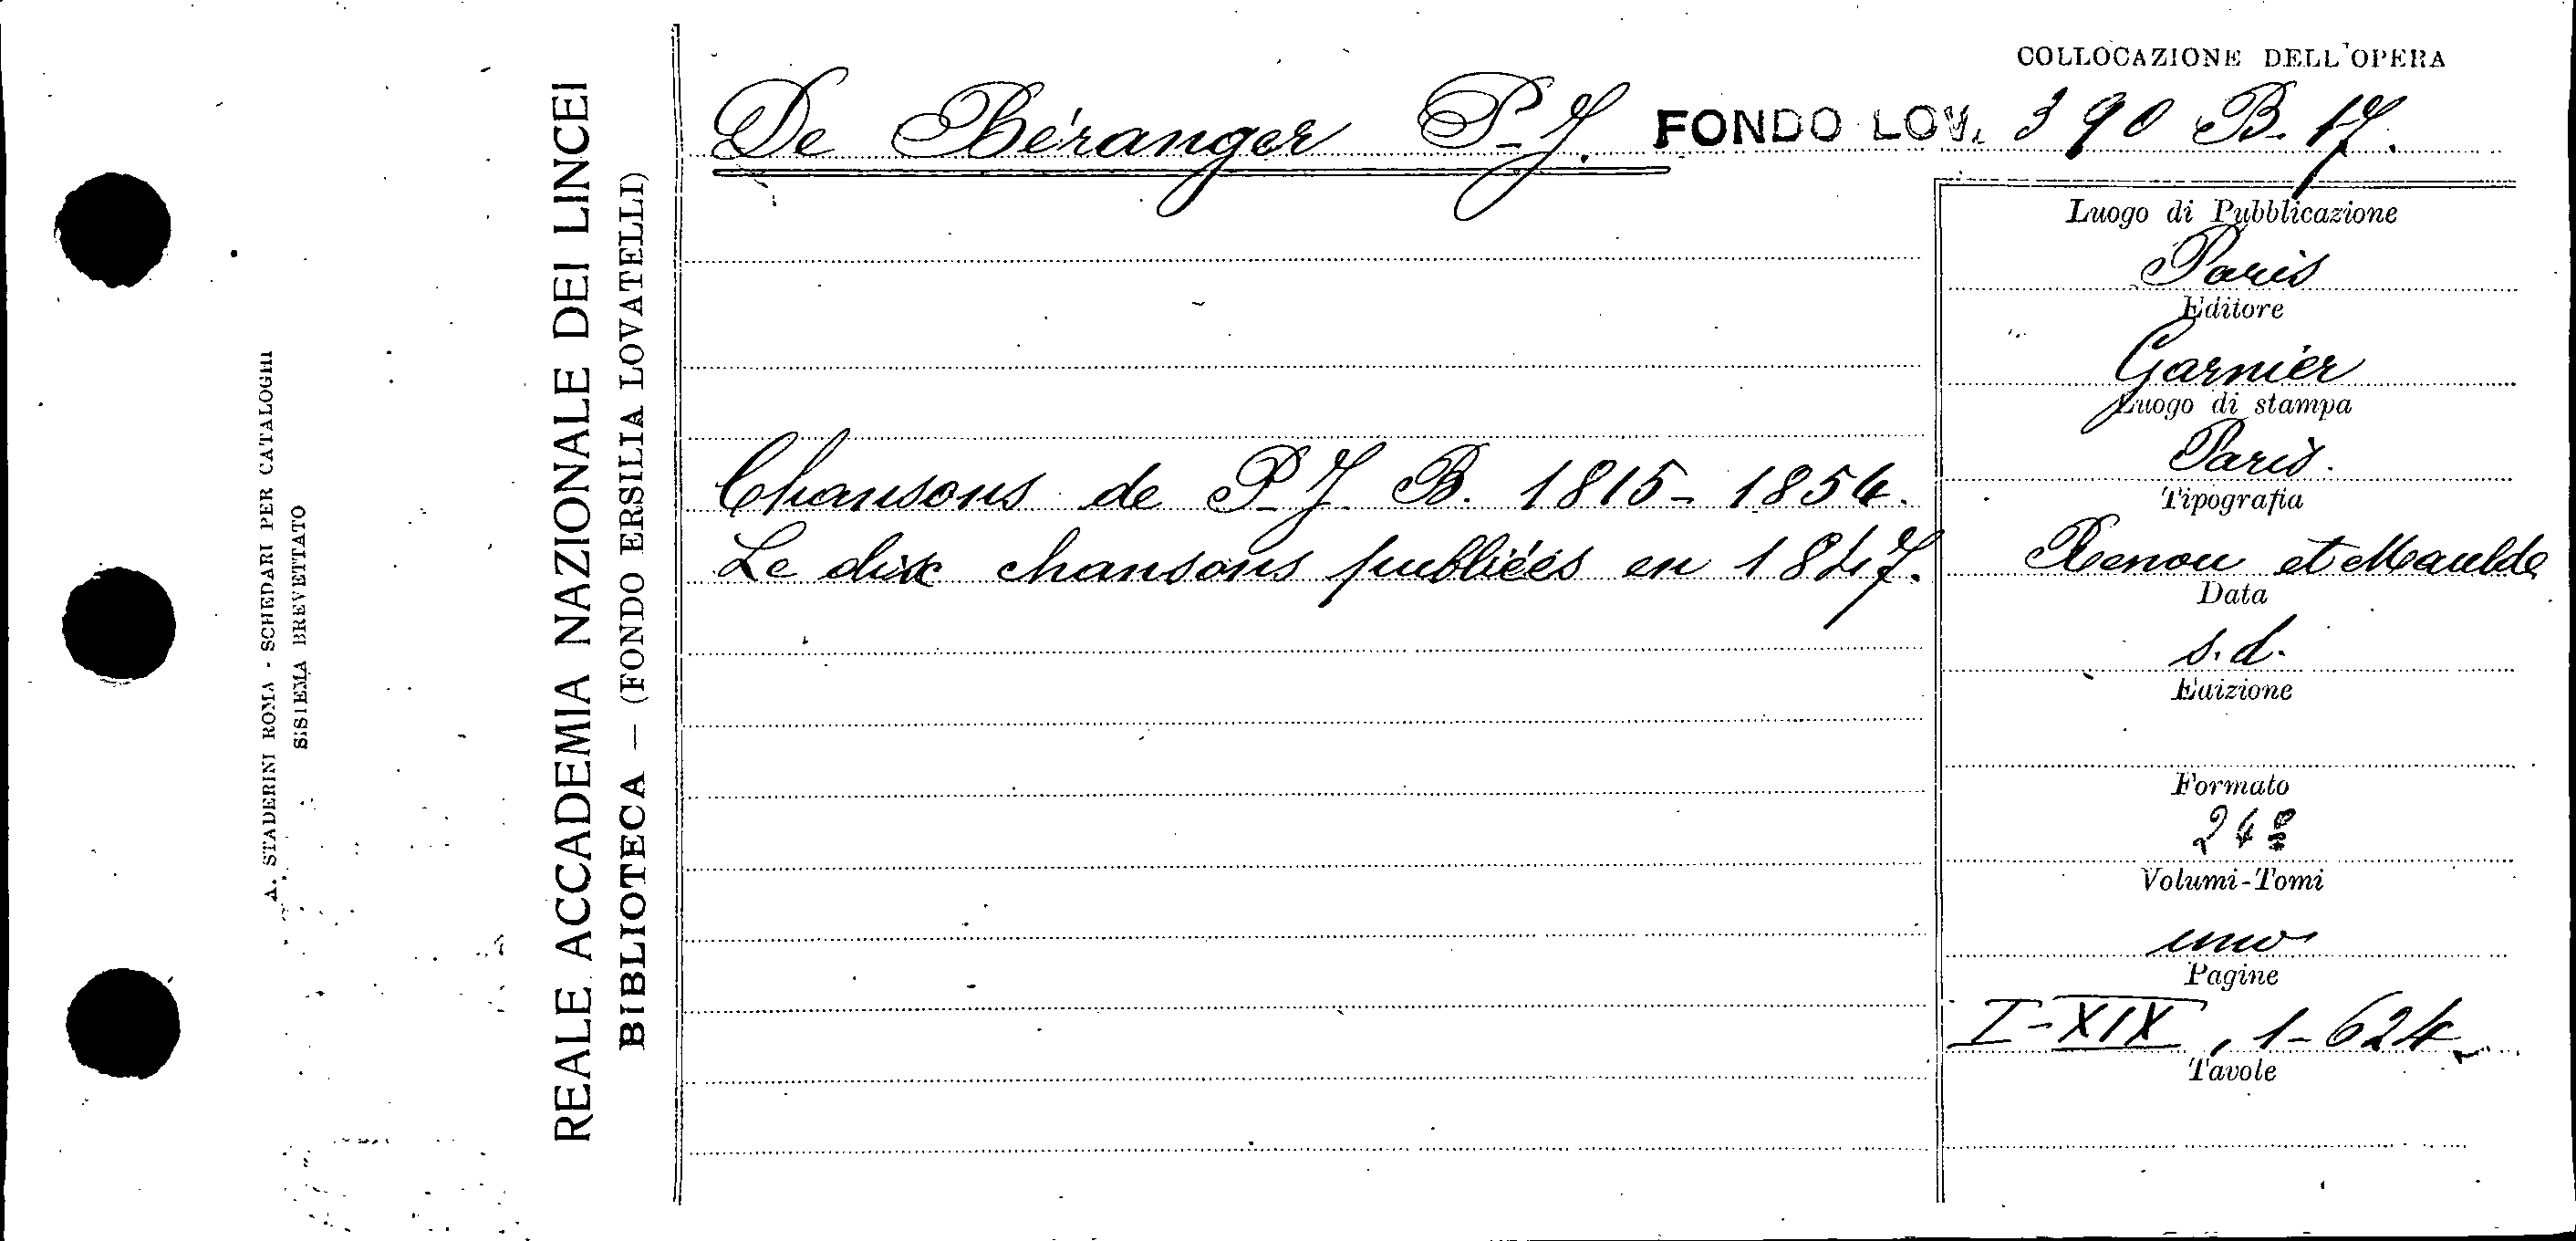 A. STADERINI ROMA - SCHEDARI PER CATALOGHI
SISTEMA BREVETTATO
REALE ACCADEMIA NAZIONALE DEI LINCEI
BIBLIOTECA — (FONDO ERSILIA LOVATELLI)
COLLOCAZIONE DELL'OPERA
De Béranger P-J. FONDO LOV. 390 B. 17.
Chansons de P. J. B. 1815-1854.
Le dix chansons publiées en 1847.
Luogo di Pubblicazione
Paris
Editore
Garnier
Luogo di stampa
Paris.
Tipografia
Renou et Maulde
Data
s.d.
Edizione
Formato
24º
Volumi-Tomi
uno
Pagine
I-XIX, 1-624
Tavole